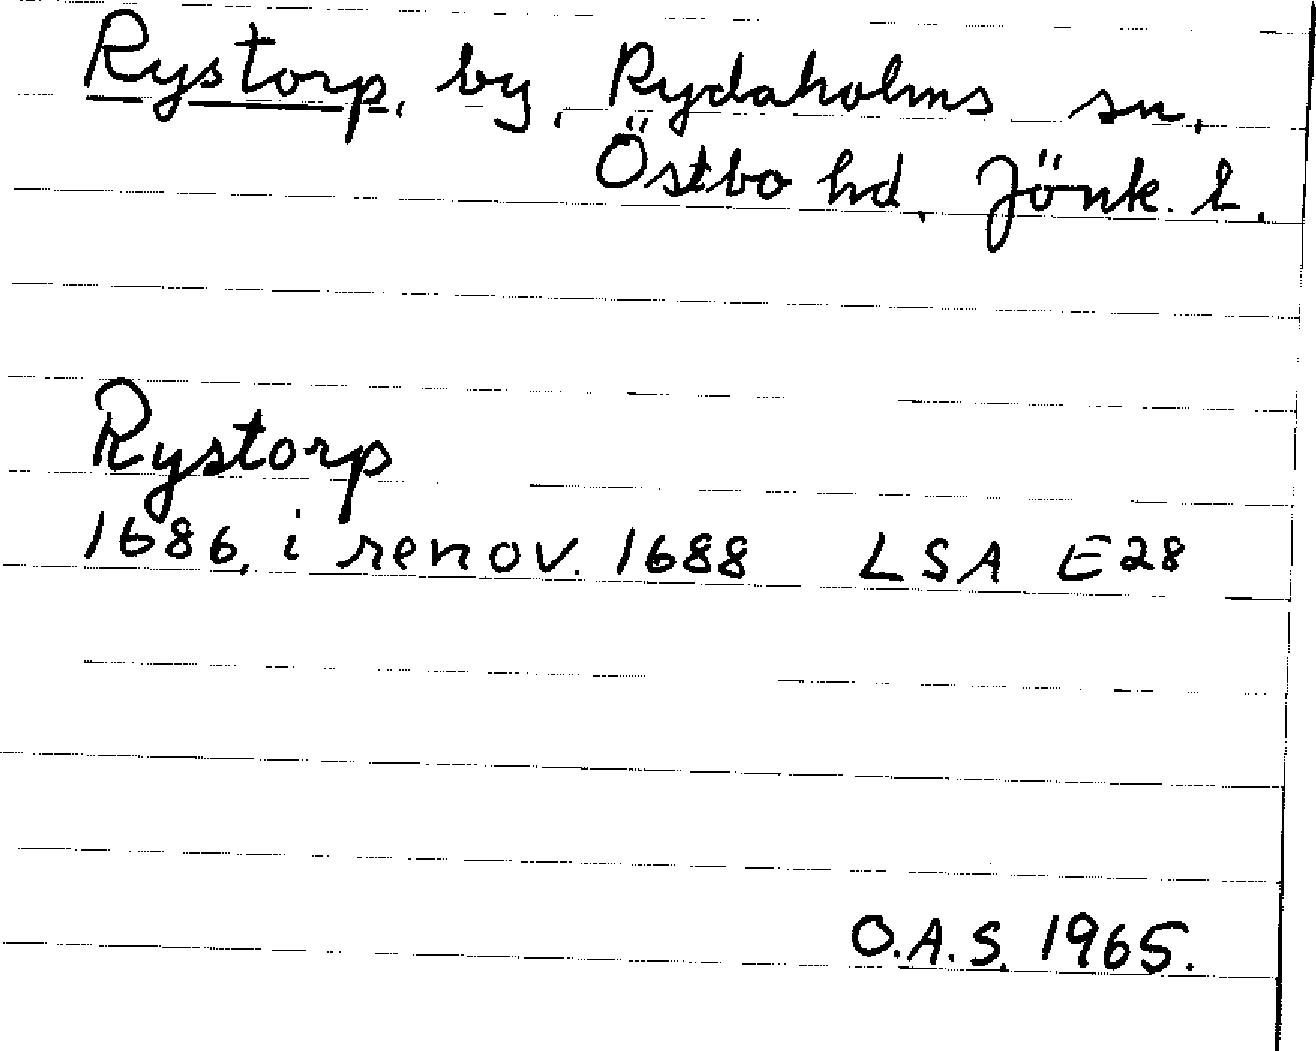 Rystorp, by, Rydaholms sn,
Östbo hd, Jönk. l.
Rystorp
1686, i renov. 1688 LSA E28
O.A.S. 1965.